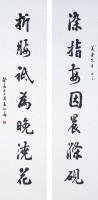 染指每因晨滌硯
折腰祗為晚澆花